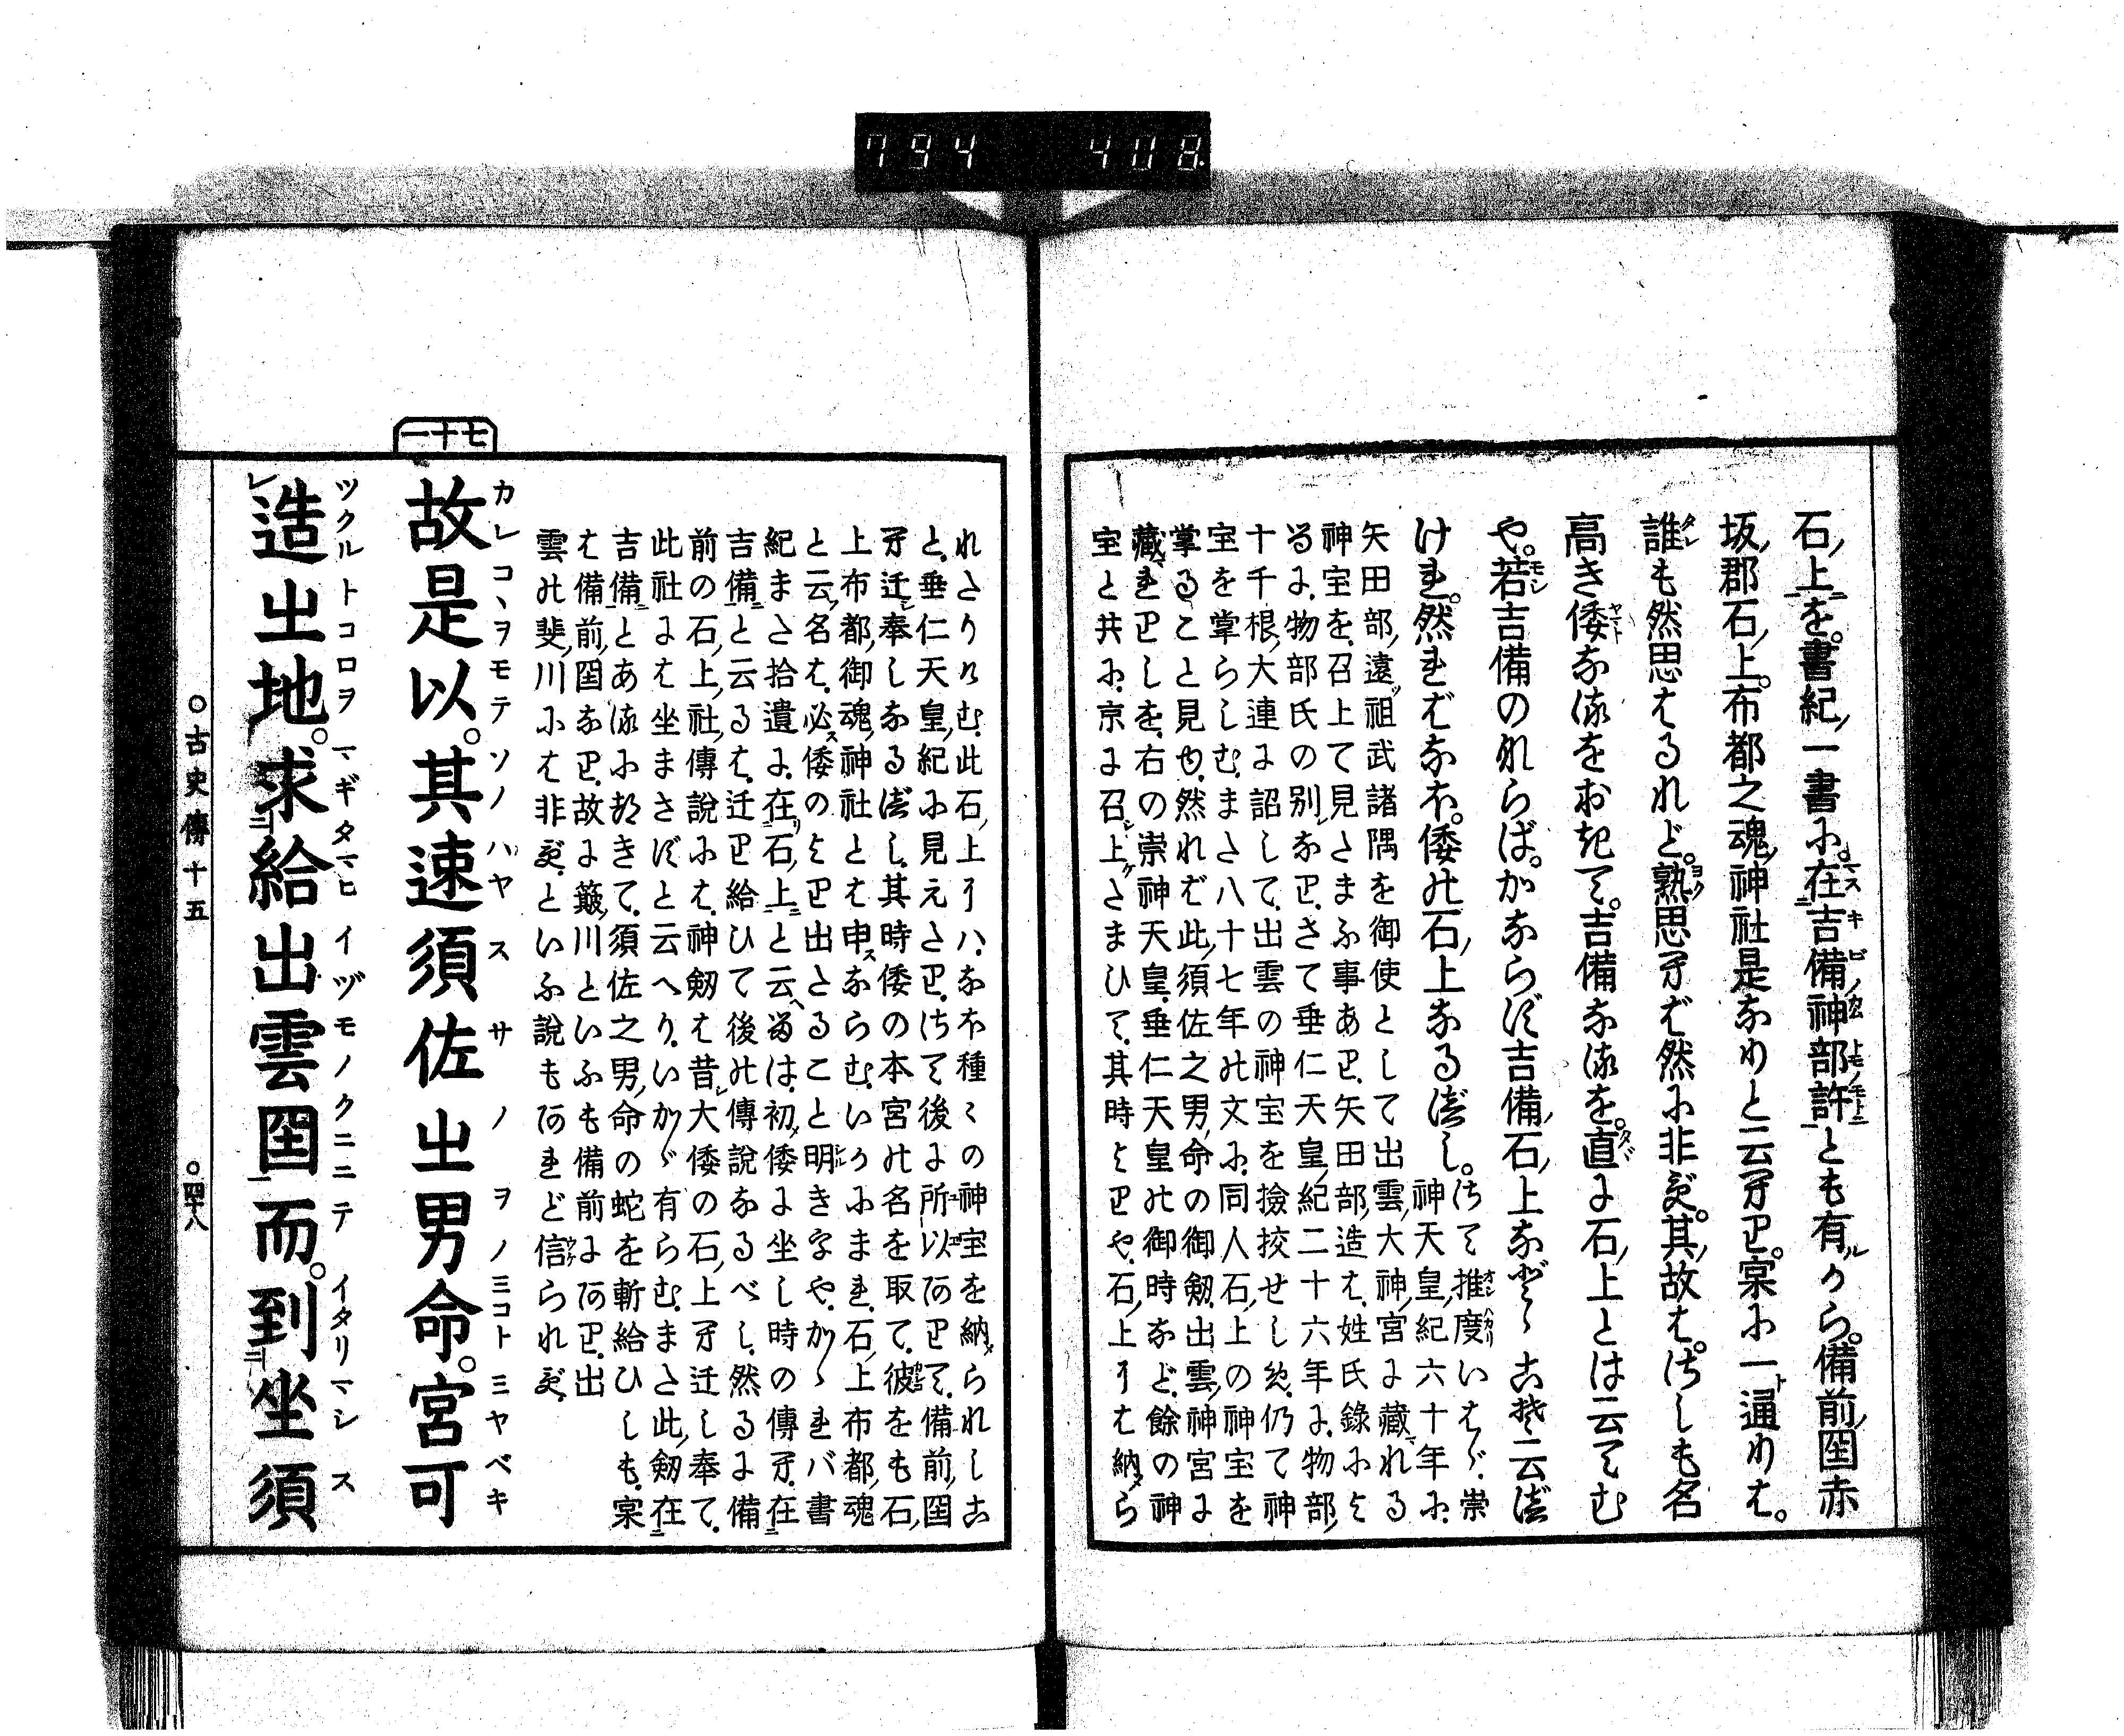 794 408
石ノ上を。書紀ノ一書に。在吉備神部許とも有から。備前ノ国赤
坂ノ郡石ノ上。布都之魂ノ神社是なりと云り。実に一ト通りは。
誰も然思はるれど。熟思へば然に非ず。其ノ故は。さしも名
高き倭なるをおきて。吉備なるを。直に石ノ上とは云てむ
や。若吉備のならば。かならず吉備ノ石ノ上などゝこそ云べ
けれ。然ればなほ。倭の石ノ上なるべし。さて推度いはゞ、崇
神天皇ノ紀六十年に、
矢田部ノ遠ツ祖武諸隅を御使として出雲ノ大神ノ宮に蔵れる
神宝を、召上て見たまふ事あり、矢田部ノ造は、姓氏録によ
るに、物部氏の別なり、さて垂仁天皇ノ紀二十六年に、物部ノ
十千根ノ大連に詔して、出雲の神宝を検挍せしめ、仍て神
宝を掌らしむ、また八十七年の文に、同人石ノ上の神宝を
掌ること見ゆ、然れば此ノ須佐之男ノ命の御剱、出雲ノ神宮に
蔵れりしを、右の崇神天皇、垂仁天皇の御時など、餘の神
宝と共に、京に召シ上ケたまひて、其時よりや、石ノ上には納メら
れたりけむ、此石ノ上には、なほ種々の神宝を納メられしこ
と、垂仁天皇ノ紀に見えたり、さて後に所以ありて、備前ノ国
へ迁し奉しなるべし、其時倭の本宮の名を取て、彼をも石ノ
上布都ノ御魂ノ神社とは申スならむ、いかにまれ、石ノ上布都ノ魂
と云ノ名は、必ス倭のより出たること明きなや、かゝれバ書
紀また拾遺に、在リ石ノ上ニと云へるは、初メ倭に坐し時の傳へ、在
吉備ニと云るは、迁り給ひて後の傳説なるべし、然るに備
前の石ノ上ノ社ノ傳説には、神剱は昔シ大倭の石ノ上へ迁し奉て、
此社には坐まさずと云へり、いかゞ有らむ、また此ノ剱在
吉備ニとあるに就きて、須佐之男ノ命の蛇を斬給ひしも、実
は備前ノ国なり、故に簸ノ川といふも備前にあり、出
雲の斐ノ川には非ず、といふ説もあれど信られず、
七十一
故是以。其速須佐之男命。宮可
造之地。求給出雲国而。到坐須
○古史傳十五 ○四十八